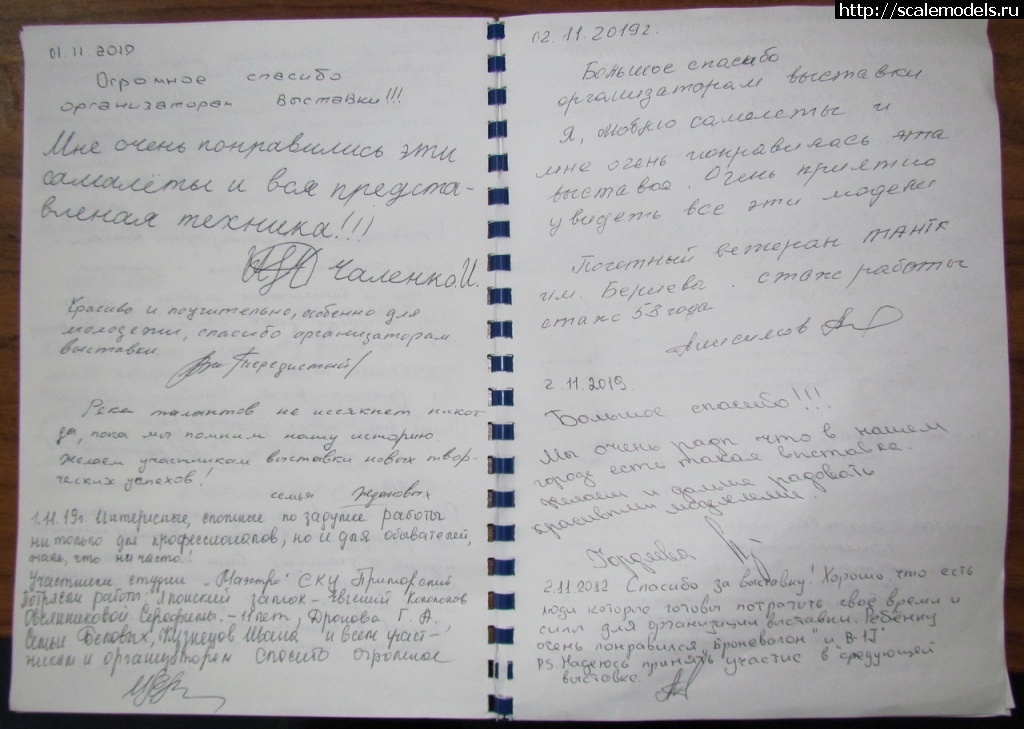 http://scalemodels.ru
01.11.2019
Огромное спасибо
организаторам выставки!!!
Мне очень понравились эти
самалёты и вся предста-
вленая техника!!!
Чаленко И.
Красиво и поучительно, особенно для
молодежи, спасибо организаторам
выставки.
Река талантов не иссякнет никог-
да, пока мы помним нашу историю.
Желаем участникам выставки новых твор-
ческих успехов!
семья Ждановых
1.11.19г. Интересные, сложные по задумке работы
ни только для профессионалов, но и для обывателей,
жаль, что ни часто!
Участники студии „Маэстро" СКУ Приморский.
Потрясли работы: Японский замок - Евгений
Серафимы - 11 лет, Дронова Г. А.
Семьи Беловых, Кузнецов Ивана и всем участ-
никам и организаторам спасибо огромное
02.11.2019г.
Большое спасибо
организаторам выставки
Я, люблю самолеты и
мне очень понравилась эта
выставка. Очень приятно
увидеть все эти модели
Почетный ветеран ТАНТК
им. Бериева. стаж работы
стаж 53 года
Анисимов
2.11.2019.
Большое спасибо!!!
Мы очень рады что в нашем
городе есть такая выставка.
Желаем и дальше радовать
красивыми моделями!
Гордеева
2.11.2012 Спасибо за выставку! Хорошо что есть
люди которые готовы потратить своё время и
силы для организации выставки. Ребёнку
очень понравился „Броневагон" и
PS. Надеюсь принять участие в следующей
выставке.